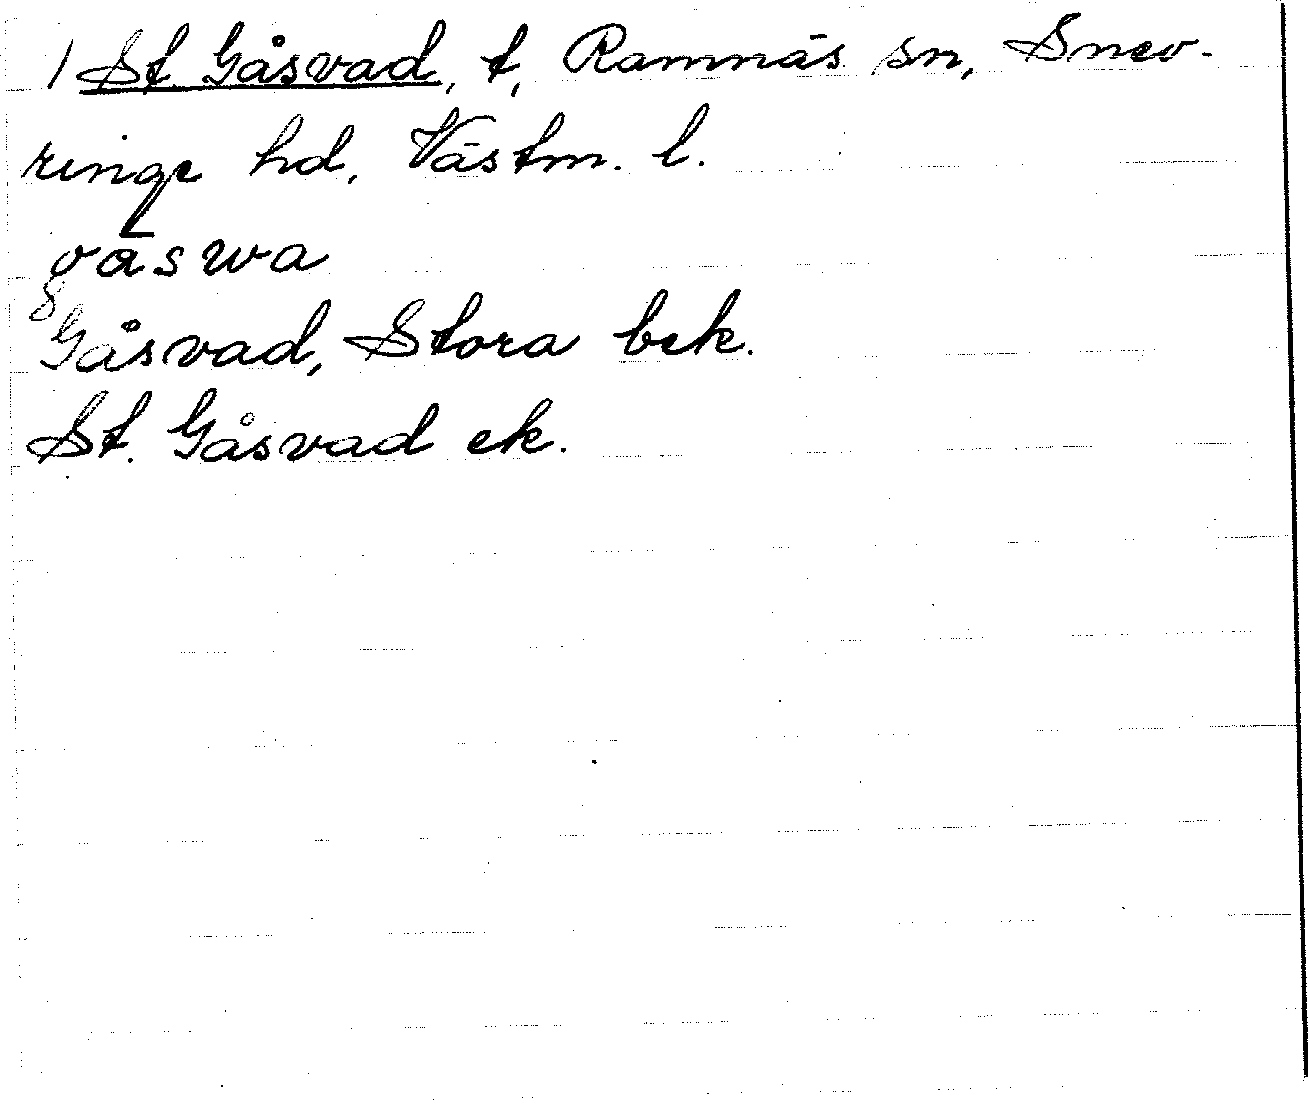 1 St. Gåsvad, t, Ramnäs sn, Snev-
ringe hd, Västm. l.
gåswa
Gåsvad, Stora bek.
St. Gåsvad ek.